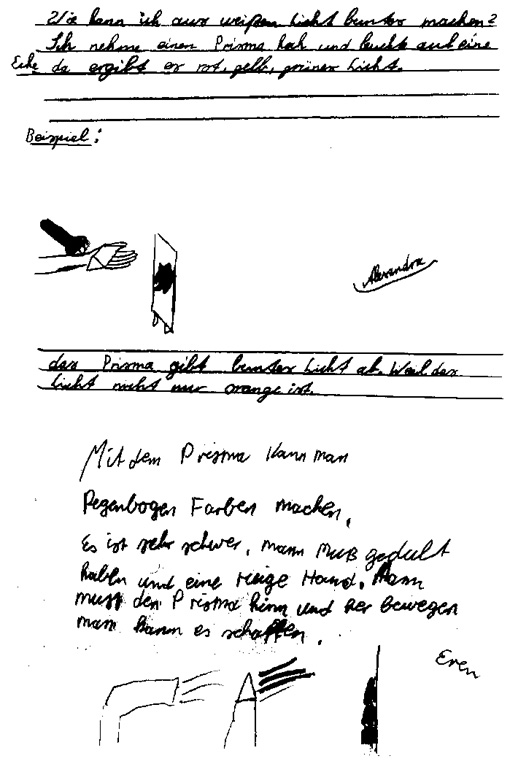 Wie kann ich aus weißen Licht buntes machen?
Ich nehme einen Prisma hoch und leuchte auf eine
Ecke da ergibt es rot, gelb, grünes Licht.
Beispiel:
Alexandra
das Prisma gibt buntes Licht ab. Weil das
Licht nicht nur orange ist.
Mit dem Prisma kann man
Regenbogen Farben machen.
Es ist sehr schwer, mann muß gedult
haben und eine ruige Hand. Mann
muss den Prisma hinn und her bewegen
mann kann es schaffen.
Eren